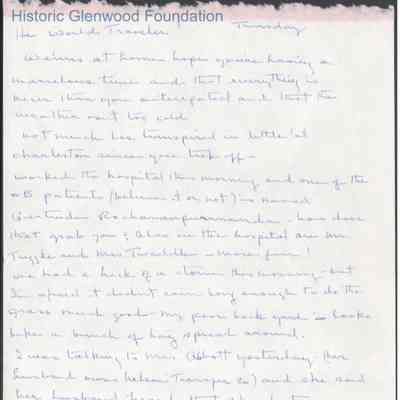 Historic Glenwood Foundation
Tuesday
Hi World Traveler
We'uns at home hope youse having a
marvelous time and that everything is
more than you anticipated and that the
weather isn't too cold
Not much has transpired in little ol
Charleston since you took off -
Worked the hospital this morning and one of the
OB patients (believe it or not) is named
Gertrudes - how does
that grab you? Also in the hospital are Mr
Tuggle and Mrs Twaddle - more fun!
We had a heck of a storm this morning - but
I'm afraid it didn't rain long enough to do the
grass much good - my poor back yard looks
like a bunch of hay spread around.
I was talking to Mrs Abbott yesterday (her
husband owns Transfer Co) and she said
her husband heard that